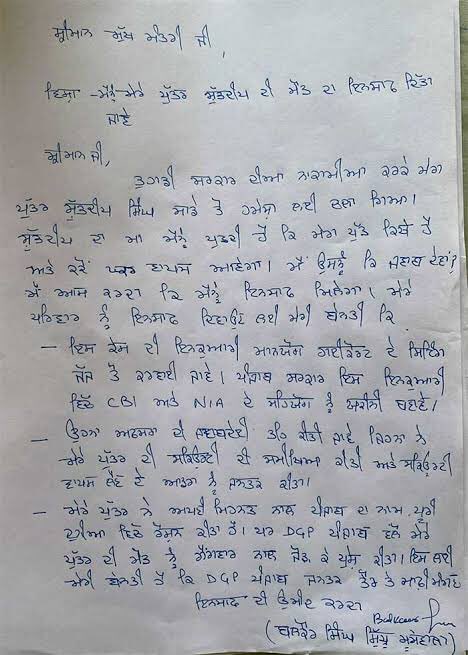 ਸ਼੍ਰੀਮਾਨ ਮੁੱਖ ਮੰਤਰੀ ਜੀ,
ਵਿਸ਼ਾ - ਮੈਨੂੰ ਮੇਰੇ ਪੁੱਤਰ ਸ਼ੁੱਭਦੀਪ ਦੀ ਮੌਤ ਦਾ ਇਨਸਾਫ ਦਿੱਤਾ
ਜਾਵੇ
ਸ਼੍ਰੀਮਾਨ ਜੀ,
ਤੁਹਾਡੀ ਸਰਕਾਰ ਦੀਆਂ ਨਾਕਾਮੀਆਂ ਕਰਕੇ ਮੇਰਾ
ਪੁੱਤਰ ਸ਼ੁੱਭਦੀਪ ਸਿੰਘ ਸਾਡੇ ਤੋਂ ਹਮੇਸ਼ਾ ਲਈ ਚਲਾ ਗਿਆ।
ਸ਼ੁੱਭਦੀਪ ਦਾ ਮਾਂ ਮੈਨੂੰ ਪੁਛਦੀ ਹੈ ਕਿ ਮੇਰਾ ਪੁੱਤ ਕਿਥੇ ਹੈ
ਅਤੇ ਕਦੋਂ ਵਾਪਸ ਆਏਗਾ। ਮੈਂ ਉਸਨੂੰ ਕਿ ਜਵਾਬ ਦੇਵਾਂ?
ਮੈਂ ਆਸ ਕਰਦਾ ਕਿ ਮੈਨੂੰ ਇਨਸਾਫ ਮਿਲੇਗਾ। ਮੇਰੇ
ਪਰਿਵਾਰ ਨੂੰ ਇਨਸਾਫ ਦਿਵਾਉਣ ਲਈ ਮੇਰੀ ਬੇਨਤੀ ਕਿ
- ਇਸ ਕੇਸ ਦੀ ਇਨਕੁਆਰੀ ਮਾਨਯੋਗ ਹਾਈਕੋਰਟ ਦੇ ਸਿਟਿੰਗ
ਜੱਜ ਤੋਂ ਕਰਵਾਈ ਜਾਵੇ। ਪੰਜਾਬ ਸਰਕਾਰ ਇਸ ਇਨਕੁਆਰੀ
ਵਿੱਚ CBI ਅਤੇ NIA ਦੇ ਸਹਿਯੋਗ ਨੂੰ ਯਕੀਨੀ ਬਣਾਵੇ।
- ਉਹਨਾਂ ਅਫਸਰਾਂ ਦੀ ਜਵਾਬਦੇਹੀ ਤਹਿ ਕੀਤੀ ਜਾਵੇ ਜਿਹਨਾਂ ਨੇ
ਮੇਰੇ ਪੁੱਤਰ ਦੀ ਸਕਿਉਰਟੀ ਦੀ ਸਮੀਖਿਆ ਕੀਤੀ ਅਤੇ ਸਕਿਉਰਟੀ
ਵਾਪਸ ਲੈਣ ਦੇ ਆਡਰਾਂ ਨੂੰ ਜਨਤਕ ਕੀਤਾ।
- ਮੇਰੇ ਪੁੱਤਰ ਨੇ ਆਪਣੀ ਮਿਹਨਤ ਨਾਲ ਪੰਜਾਬ ਦਾ ਨਾਮ ਪੂਰੀ
ਦੁਨੀਆ ਵਿੱਚ ਰੌਸ਼ਨ ਕੀਤਾ ਹੈ। ਪਰ DGP ਪੰਜਾਬ ਵਲੋਂ ਮੇਰੇ
ਪੁੱਤਰ ਦੀ ਮੌਤ ਨੂੰ ਗੈਂਗਵਾਰ ਨਾਲ ਜੋੜ ਕੇ ਪੇਸ਼ ਕੀਤਾ। ਇਸ ਲਈ
ਮੇਰੀ ਬੇਨਤੀ ਹੈ ਕਿ DGP ਪੰਜਾਬ ਜਨਤਕ ਤੌਰ ਤੇ ਮਾਫੀ ਮੰਗਣ
ਇਨਸਾਫ ਦੀ ਉਮੀਦ ਕਰਦਾ
Balkaur
(ਬਲਕੌਰ ਸਿੰਘ ਸਿੱਧੂ ਮੂਸੇਵਾਲਾ)